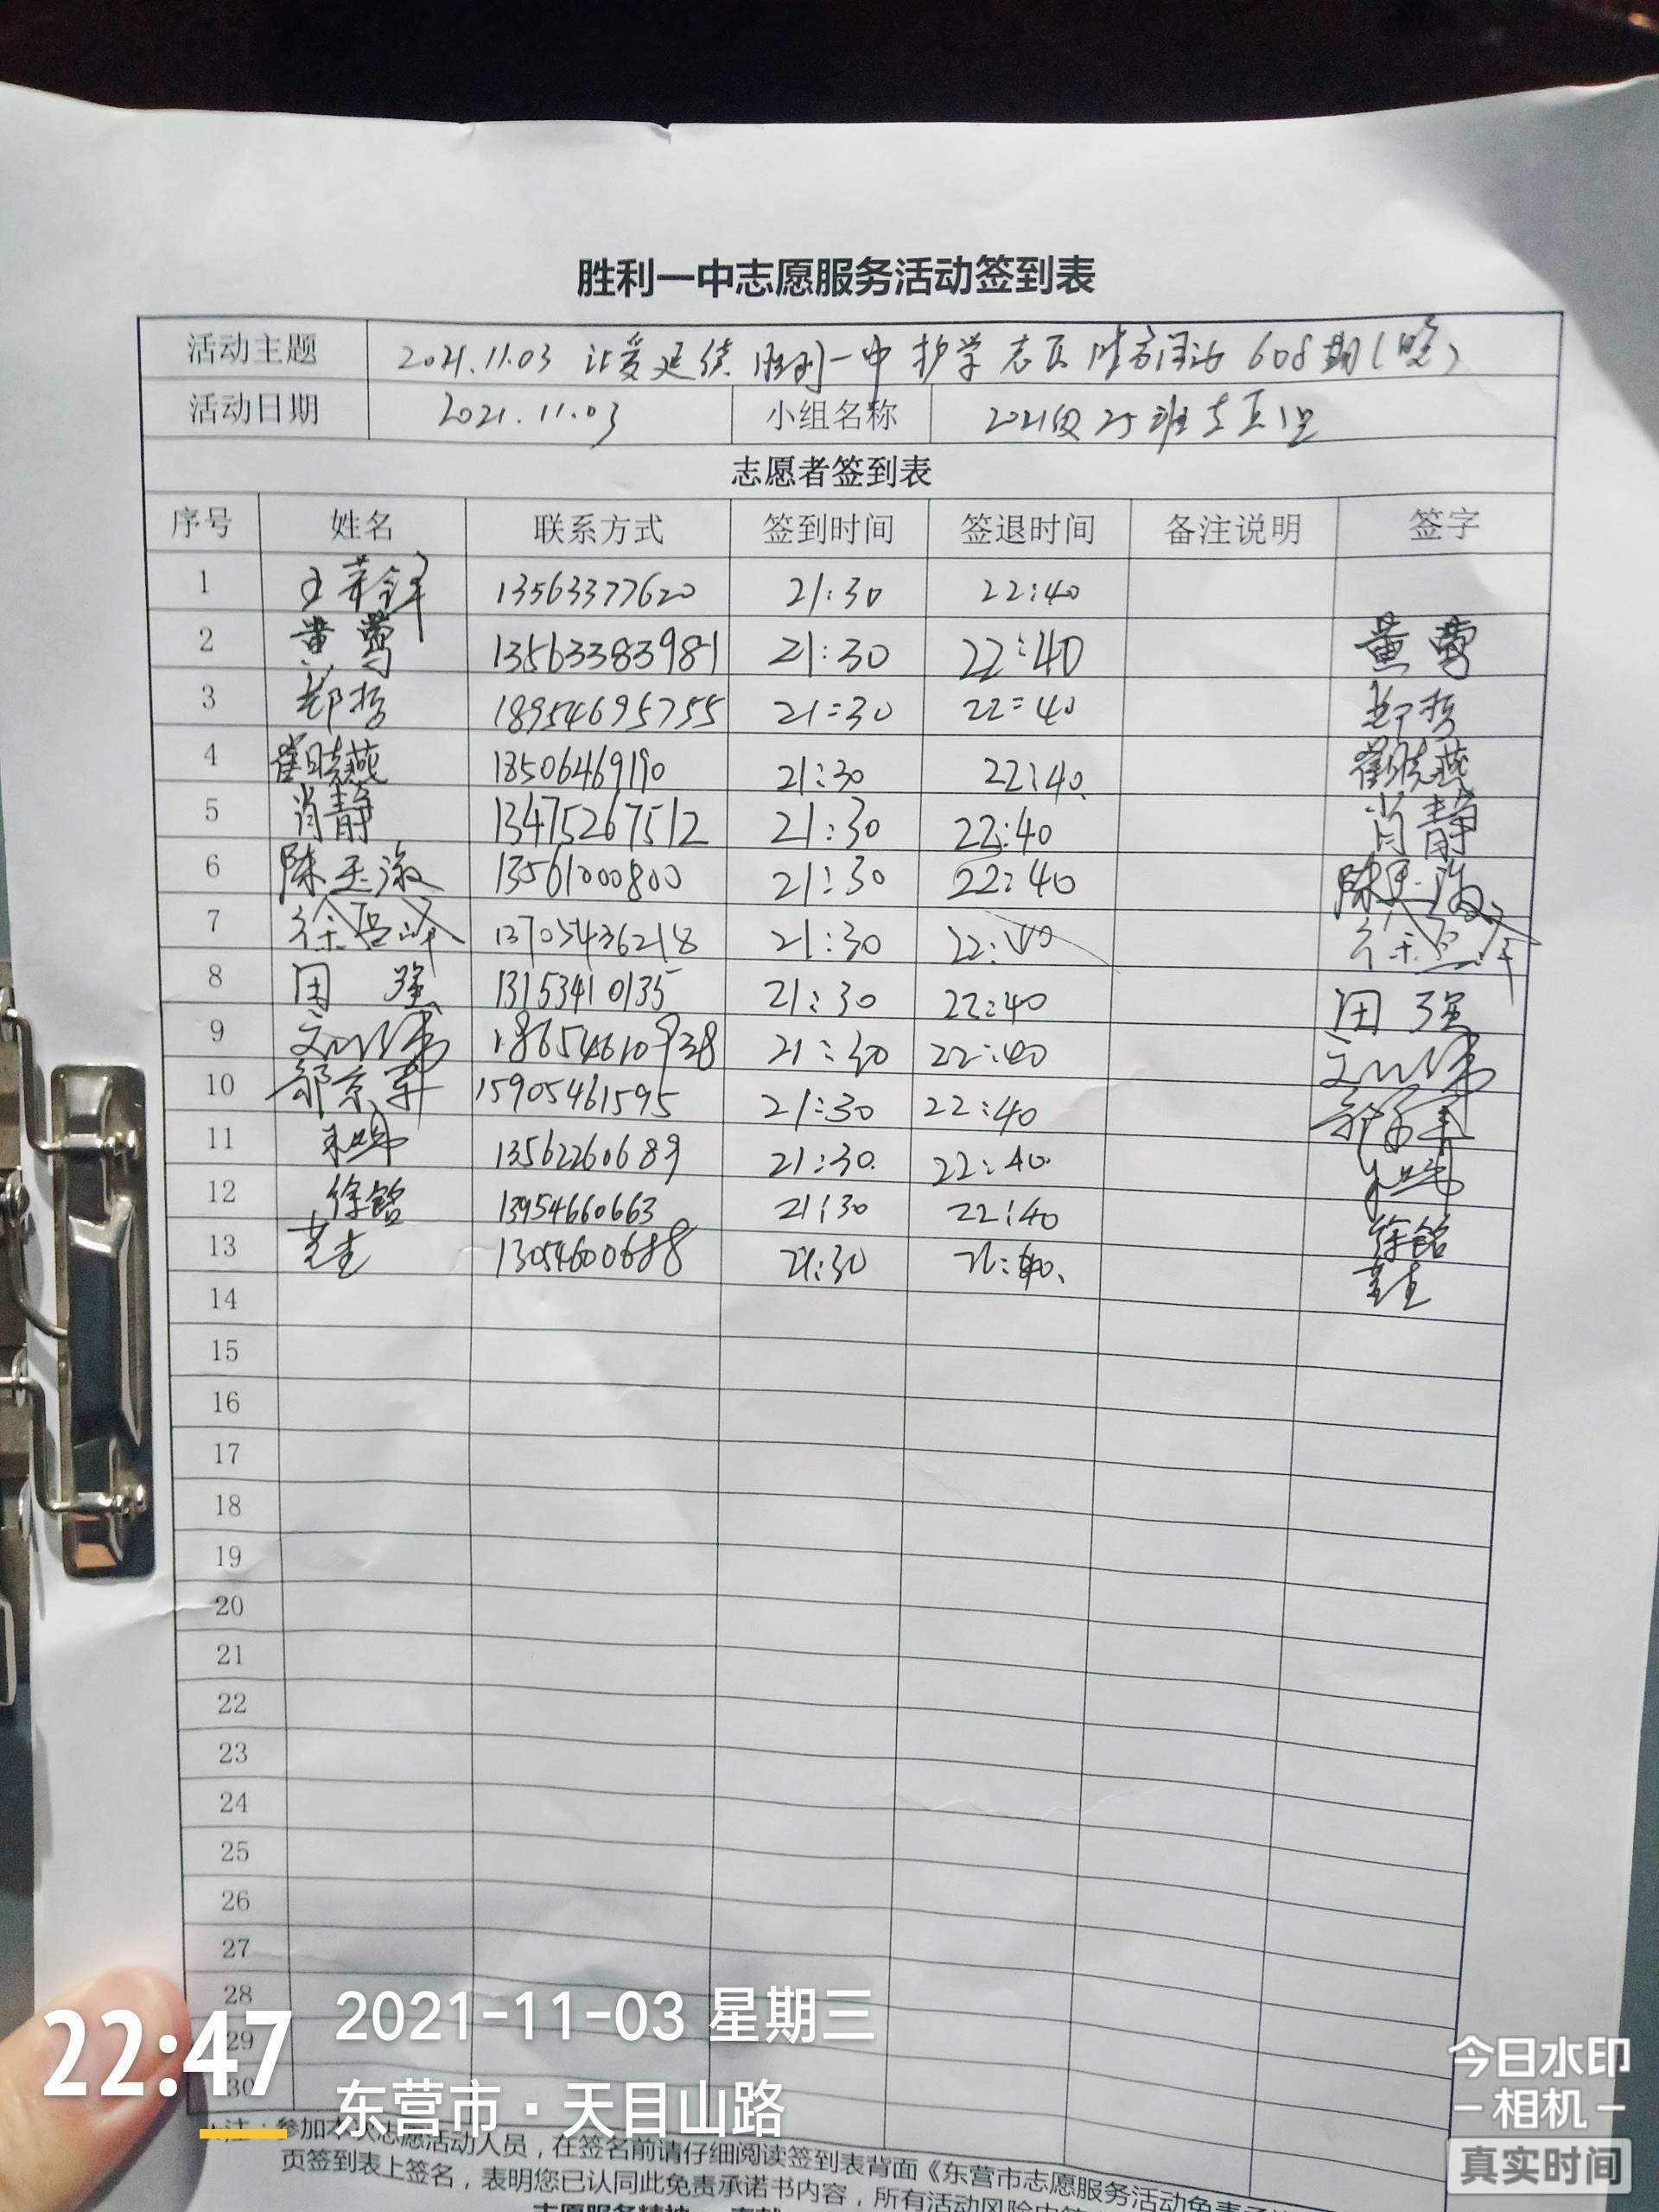 胜利一中志愿服务活动签到表
活动主题 2021.11.03 让爱延续 胜利一中护学志愿服务活动 608期(晚)
活动日期 2021.11.03 小组名称 2021级25班志愿
志愿者签到表
序号 姓名 联系方式 签到时间 签退时间 备注说明 签字
1 王 13563377620 21:30 22:40
2 黄莺 13563383981 21:30 22:40 黄莺
3 郑哲 18954695755 21:30 22:40 郑哲
4 崔晓燕 13506469190 21:30 22:40 崔晓燕
5 肖静 13475267512 21:30 22:40 肖静
6 陈玉淑 13561000800 21:30 22:40 陈玉淑
7 徐 13705436218 21:30 22:40 徐
8 田强 13153410135 21:30 22:40 田强
9 18654610938 21:30 22:40
10 15905461595 21:30 22:40
11 13562260689 21:30 22:40
12 徐铭 13954660663 21:30 22:40 徐铭
13 13054600688 21:30 22:40
14
15
16
17
18
19
20
21
22
23
24
25
26
27
28
29
30
注:参加本次志愿活动人员,在签名前请仔细阅读签到表背面《东营市志愿服务活动免责承
页签到表上签名,表明您已认同此免责承诺书内容,所有活动风险由
志愿服务精神
22:47
2021-11-03 星期三
东营市·天目山路
今日水印
-相机-
真实时间